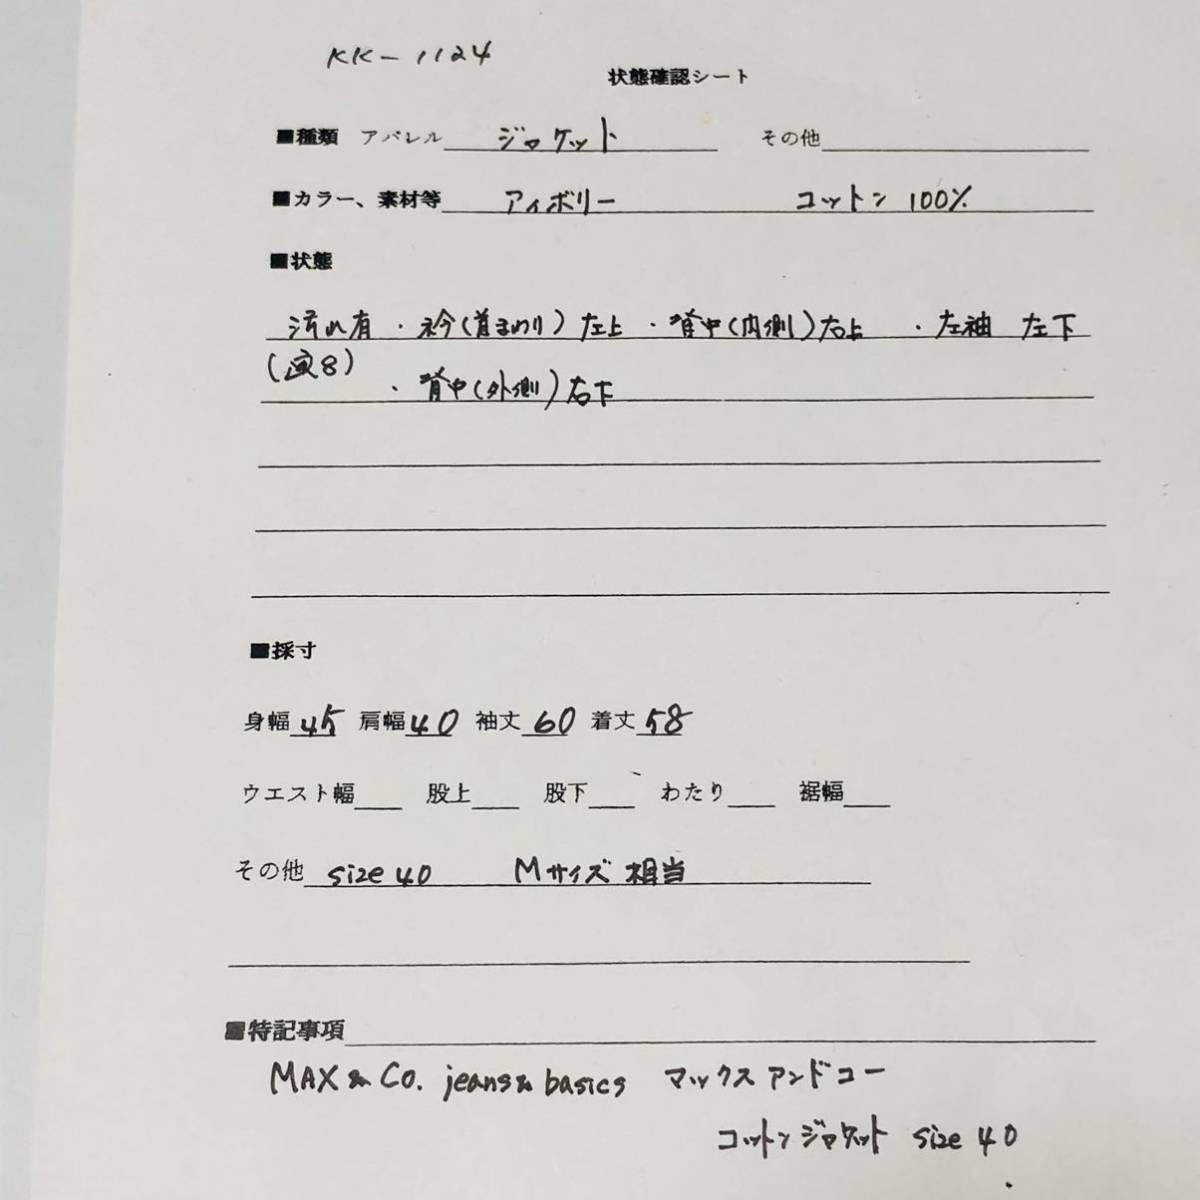 KK-1124
状態確認シート
■種類 アパレル ジャケット その他
■カラー、素材等 アイボリー コットン 100%
■状態
汚れ有 ・衿(首まわり)左上 ・背中(内側)右上 ・左袖 左下
(画8) ・背中(外側)右下
■採寸
身幅 45 肩幅 40 袖丈 60 着丈 58
ウエスト幅 股上 股下 わたり 裾幅
その他 size 40 Mサイズ 相当
■特記事項
MAX & Co. jeans & basics マックス アンド コー
コットンジャケット size 40